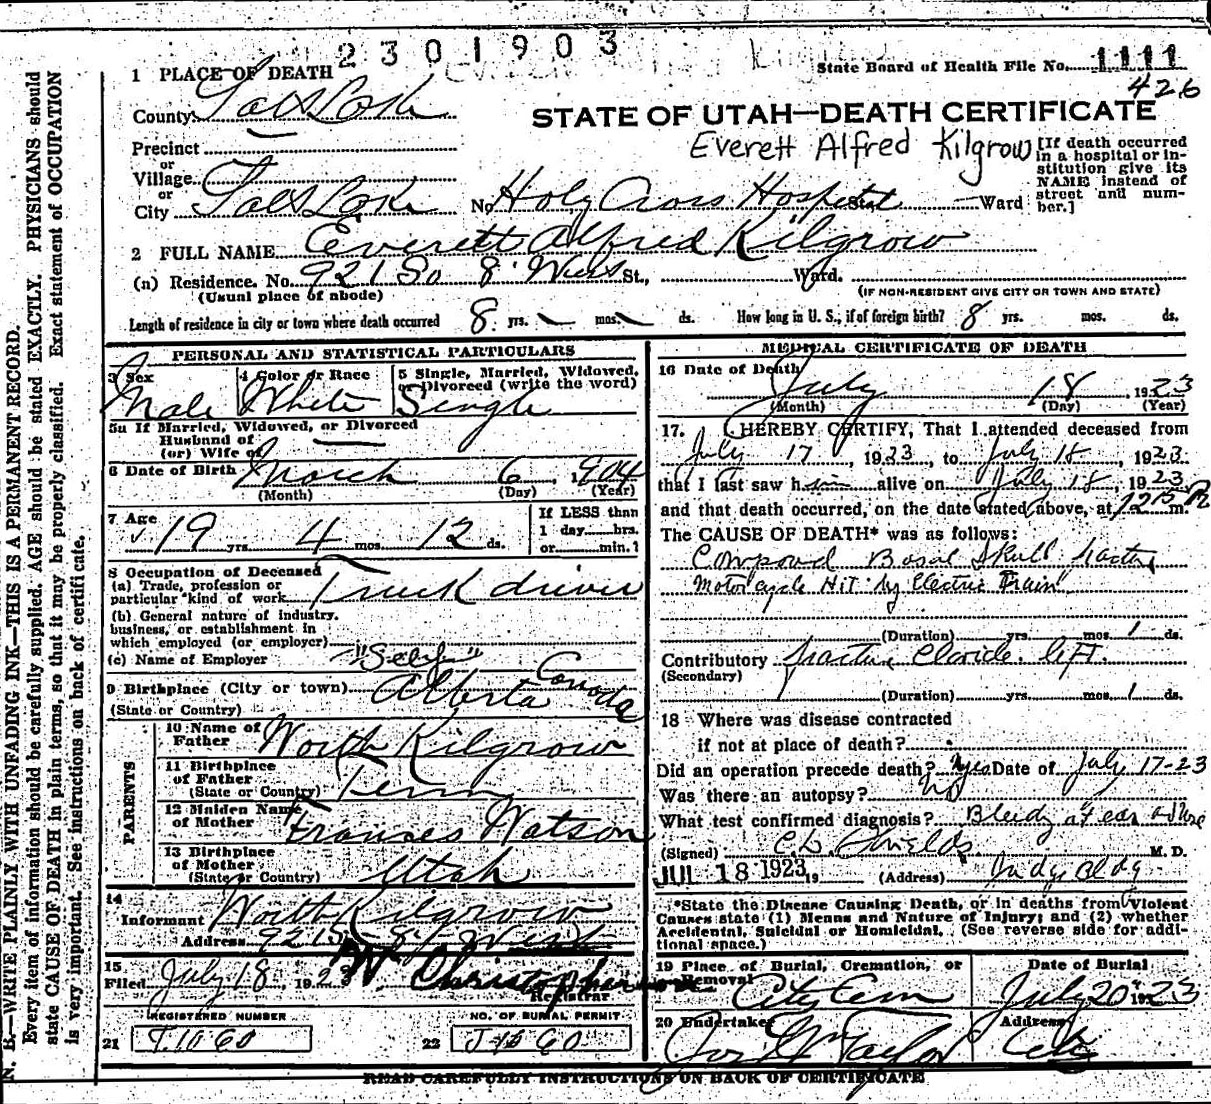 2301903
State Board of Health File No. 1111
426
1 PLACE OF DEATH
County Salt Lake
STATE OF UTAH—DEATH CERTIFICATE
Everett Alfred Kilgrow
[If death occurred in a hospital or institution give its NAME instead of street and number.]
Precinct
or
Village
or
City Salt Lake No. Holy Cross Hospital St. Ward
2 FULL NAME Everett Alfred Kilgrow
(a) Residence. No. 921 So 8 West St., Ward.
(Usual place of abode) (IF NON-RESIDENT GIVE CITY OR TOWN AND STATE)
Length of residence in city or town where death occurred 8 yrs. mos. ds. How long in U. S., if of foreign birth? 8 yrs. mos. ds.
PERSONAL AND STATISTICAL PARTICULARS
3 Sex 4 Color or Race 5 Single, Married, Widowed, or Divorced (write the word)
Male White Single
5a If Married, Widowed, or Divorced
Husband of
(or) Wife of
6 Date of Birth March 6, 1904
(Month) (Day) (Year)
7 Age 19 yrs. 4 mos. 12 ds. If LESS than 1 day hrs. or min.?
8 Occupation of Deceased
(a) Trade, profession or particular kind of work Truck driver
(b) General nature of industry, business, or establishment in which employed (or employer)
(c) Name of Employer "Self"
9 Birthplace (City or town) Alberta Canada
(State or Country)
PARENTS
10 Name of Father Worth Kilgrow
11 Birthplace of Father (State or Country) Tenn
12 Maiden Name of Mother Frances Watson
13 Birthplace of Mother (State or Country) Utah
14
Informant Worth Kilgrow
Address 921 S 8 West
15
Filed July 18, 1923 W. Christopherson
Registrar
REGISTERED NUMBER NO. OF BURIAL PERMIT
21 22
MEDICAL CERTIFICATE OF DEATH
16 Date of Death
July 18, 1923
(Month) (Day) (Year)
17. I HEREBY CERTIFY, That I attended deceased from
July 17, 1923, to July 18, 1923
that I last saw him alive on July 18, 1923
and that death occurred, on the date stated above, at 12 15 m.
The CAUSE OF DEATH* was as follows:
Compound Basal Skull fracture
Motorcycle Hit by Electric Train
(Duration) yrs. mos. 1 ds.
Contributory fracture Clavicle left.
(Secondary)
(Duration) yrs. mos. 1 ds.
18 Where was disease contracted
if not at place of death?
Did an operation precede death? yes Date of July 17-23
Was there an autopsy? no
What test confirmed diagnosis? Bleedg at ear &
(Signed) C L Shields M. D.
JUL 18 1923, 19 (Address) Judge Bldg
*State the Disease Causing Death, or in deaths from Violent Causes state (1) Means and Nature of Injury; and (2) whether Accidental, Suicidal or Homicidal. (See reverse side for additional space.)
19 Place of Burial, Cremation, or Removal Date of Burial
City Cem July 20 1923
20 Undertaker Address
Jos. Taylor City
READ CAREFULLY INSTRUCTIONS ON BACK OF CERTIFICATE
N. B.—WRITE PLAINLY WITH UNFADING INK—THIS IS A PERMANENT RECORD.
Every item of information should be carefully supplied. AGE should be stated EXACTLY. PHYSICIANS should
state CAUSE OF DEATH in plain terms, so that it may be properly classified. Exact statement of OCCUPATION
is very important. See instructions on back of certificate.